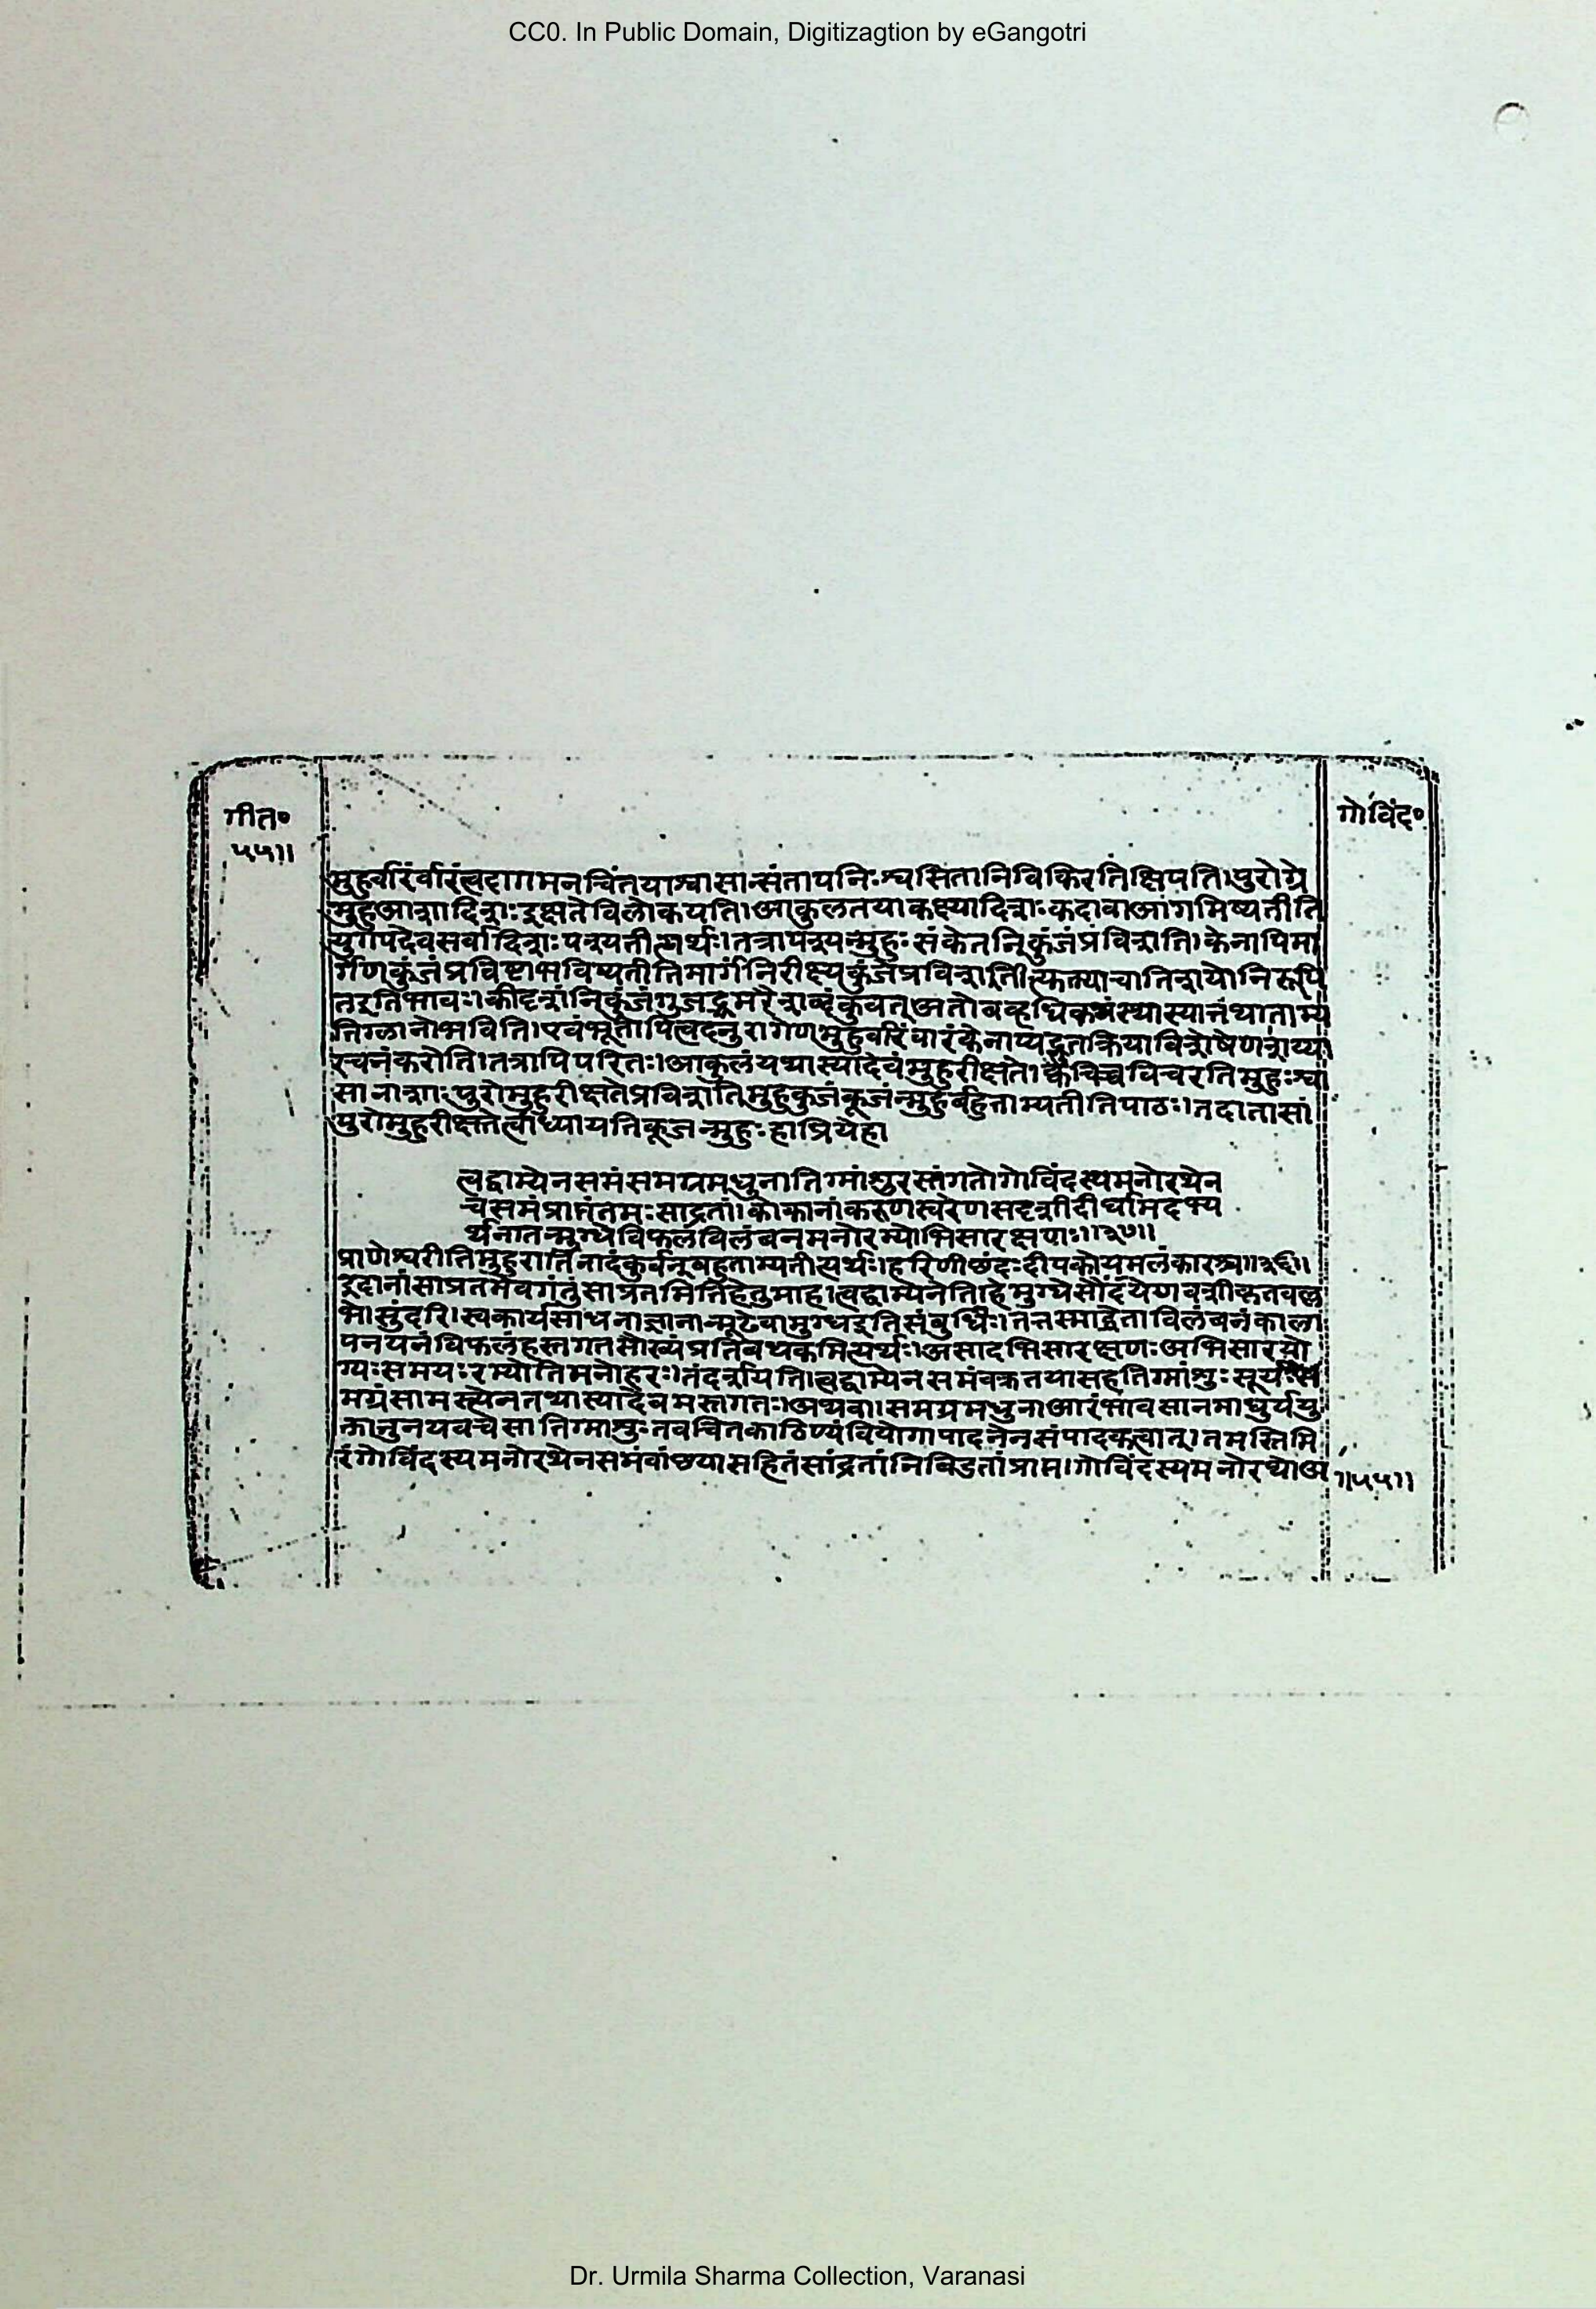 CC0. In Public Domain, Digitizagtion by eGangotri
गीत०
५५॥
गोविंद०
मुहुर्वारंवारंत्वदागमनचिंतयाश्वासान्संतापनिःश्वसितानिविकिरतिक्षिपति।पुरोग्रे
मुहुआशादिशःइक्षतेविलोकयति।आकुलतयाकक्ष्यादिशःकदावाआगमिष्यतीति
युगपदेवसर्वादिशःपश्यतीत्यर्थः।तत्रापश्यन्मुहुःसंकेतनिकुंजंप्रविशति।केनापिमा
र्गेणकुंजंप्रविष्टाभविष्यतीतिमार्गंनिरीक्ष्यकुंजंप्रविशति
तइतिभावः।कीदृशंनिकुंजंगुंजद्भ्रमरैःशब्दंकुर्वत्अतो
तिग्लानोभवति।एवंभूतोपित्वदनुरागेणमुहुर्वारंवारंकेनाप्यद्भुतक्रियाविशेषेणशय्या
रचनंकरोति।तत्रापिपरितः।आकुलंयथास्यादेवंमुहुरीक्षते।क्वचिच्चविचरतिमुहुःश्वा
सानाशाःपुरोमुहुरीक्षतेप्रविशतिमुहुकुंजंकूजंन्मुहुर्बहुताम्यतीतिपाठः।तदातासां
पुरोमुहुरीक्षतेत्वांध्यायतिकूजन्मुहुःहाप्रियेहा
त्वद्वाम्येनसमंसमग्रमधुनातिग्मांशुरस्तंगतोगोविंदस्यमनोरथेन
चसमंप्राप्तंतमःसांद्रतां।कोकानांकरुणस्वरेणसदृशीदीर्घामदभ्य
र्थनातन्मुग्धेविफलंविलंबनमनोरम्योभिसारक्षणः॥३७॥
प्राणेश्वरीतिमुहुरार्तिनादंकुर्वन्बहुताम्यतीत्यर्थः।हरिणीछंदःदीपकोयमलंकारश्च॥३६॥
इदानींसाप्रतमेवगंतुंसाप्रतमितिहेतुमाह।त्वद्वाम्येनेति।हेमुग्धेसौंदर्येणवशीकृतवल्ल
भे।सुंदरि।स्वकार्यसाधनाज्ञानान्मूढेवामुग्धइतिसंबुद्धिः।तत्तस्माद्धेतोविलंबनंकाला
पनयनंविफलंहस्तगतसौख्यंप्रतिबंधकमित्यर्थः।असादभिसारक्षणःअभिसारयो
ग्यःसमयःरम्योतिमनोहरः।तंदर्शयति।त्वद्वाम्येनसमंवक्रतयासहतिग्मांशुःसूर्यःस
मग्रंसामस्त्येनतथास्यादेवमस्तंगतः।अथवा।समग्रमधुनाआरंभावसानमाधुर्ययु
क्तानुनयवचसातिग्मांशुःतवचित्तकाठिण्यंवियोगापादनेनसंपादकत्वात्।तमस्तिमि
रंगोविंदस्यमनोरथेनसमंवांछयासहितंसांद्रतांनिबिडतांप्राप्तं।गोविंदस्यमनोरथोअ
॥५५॥
Dr. Urmila Sharma Collection, Varanasi